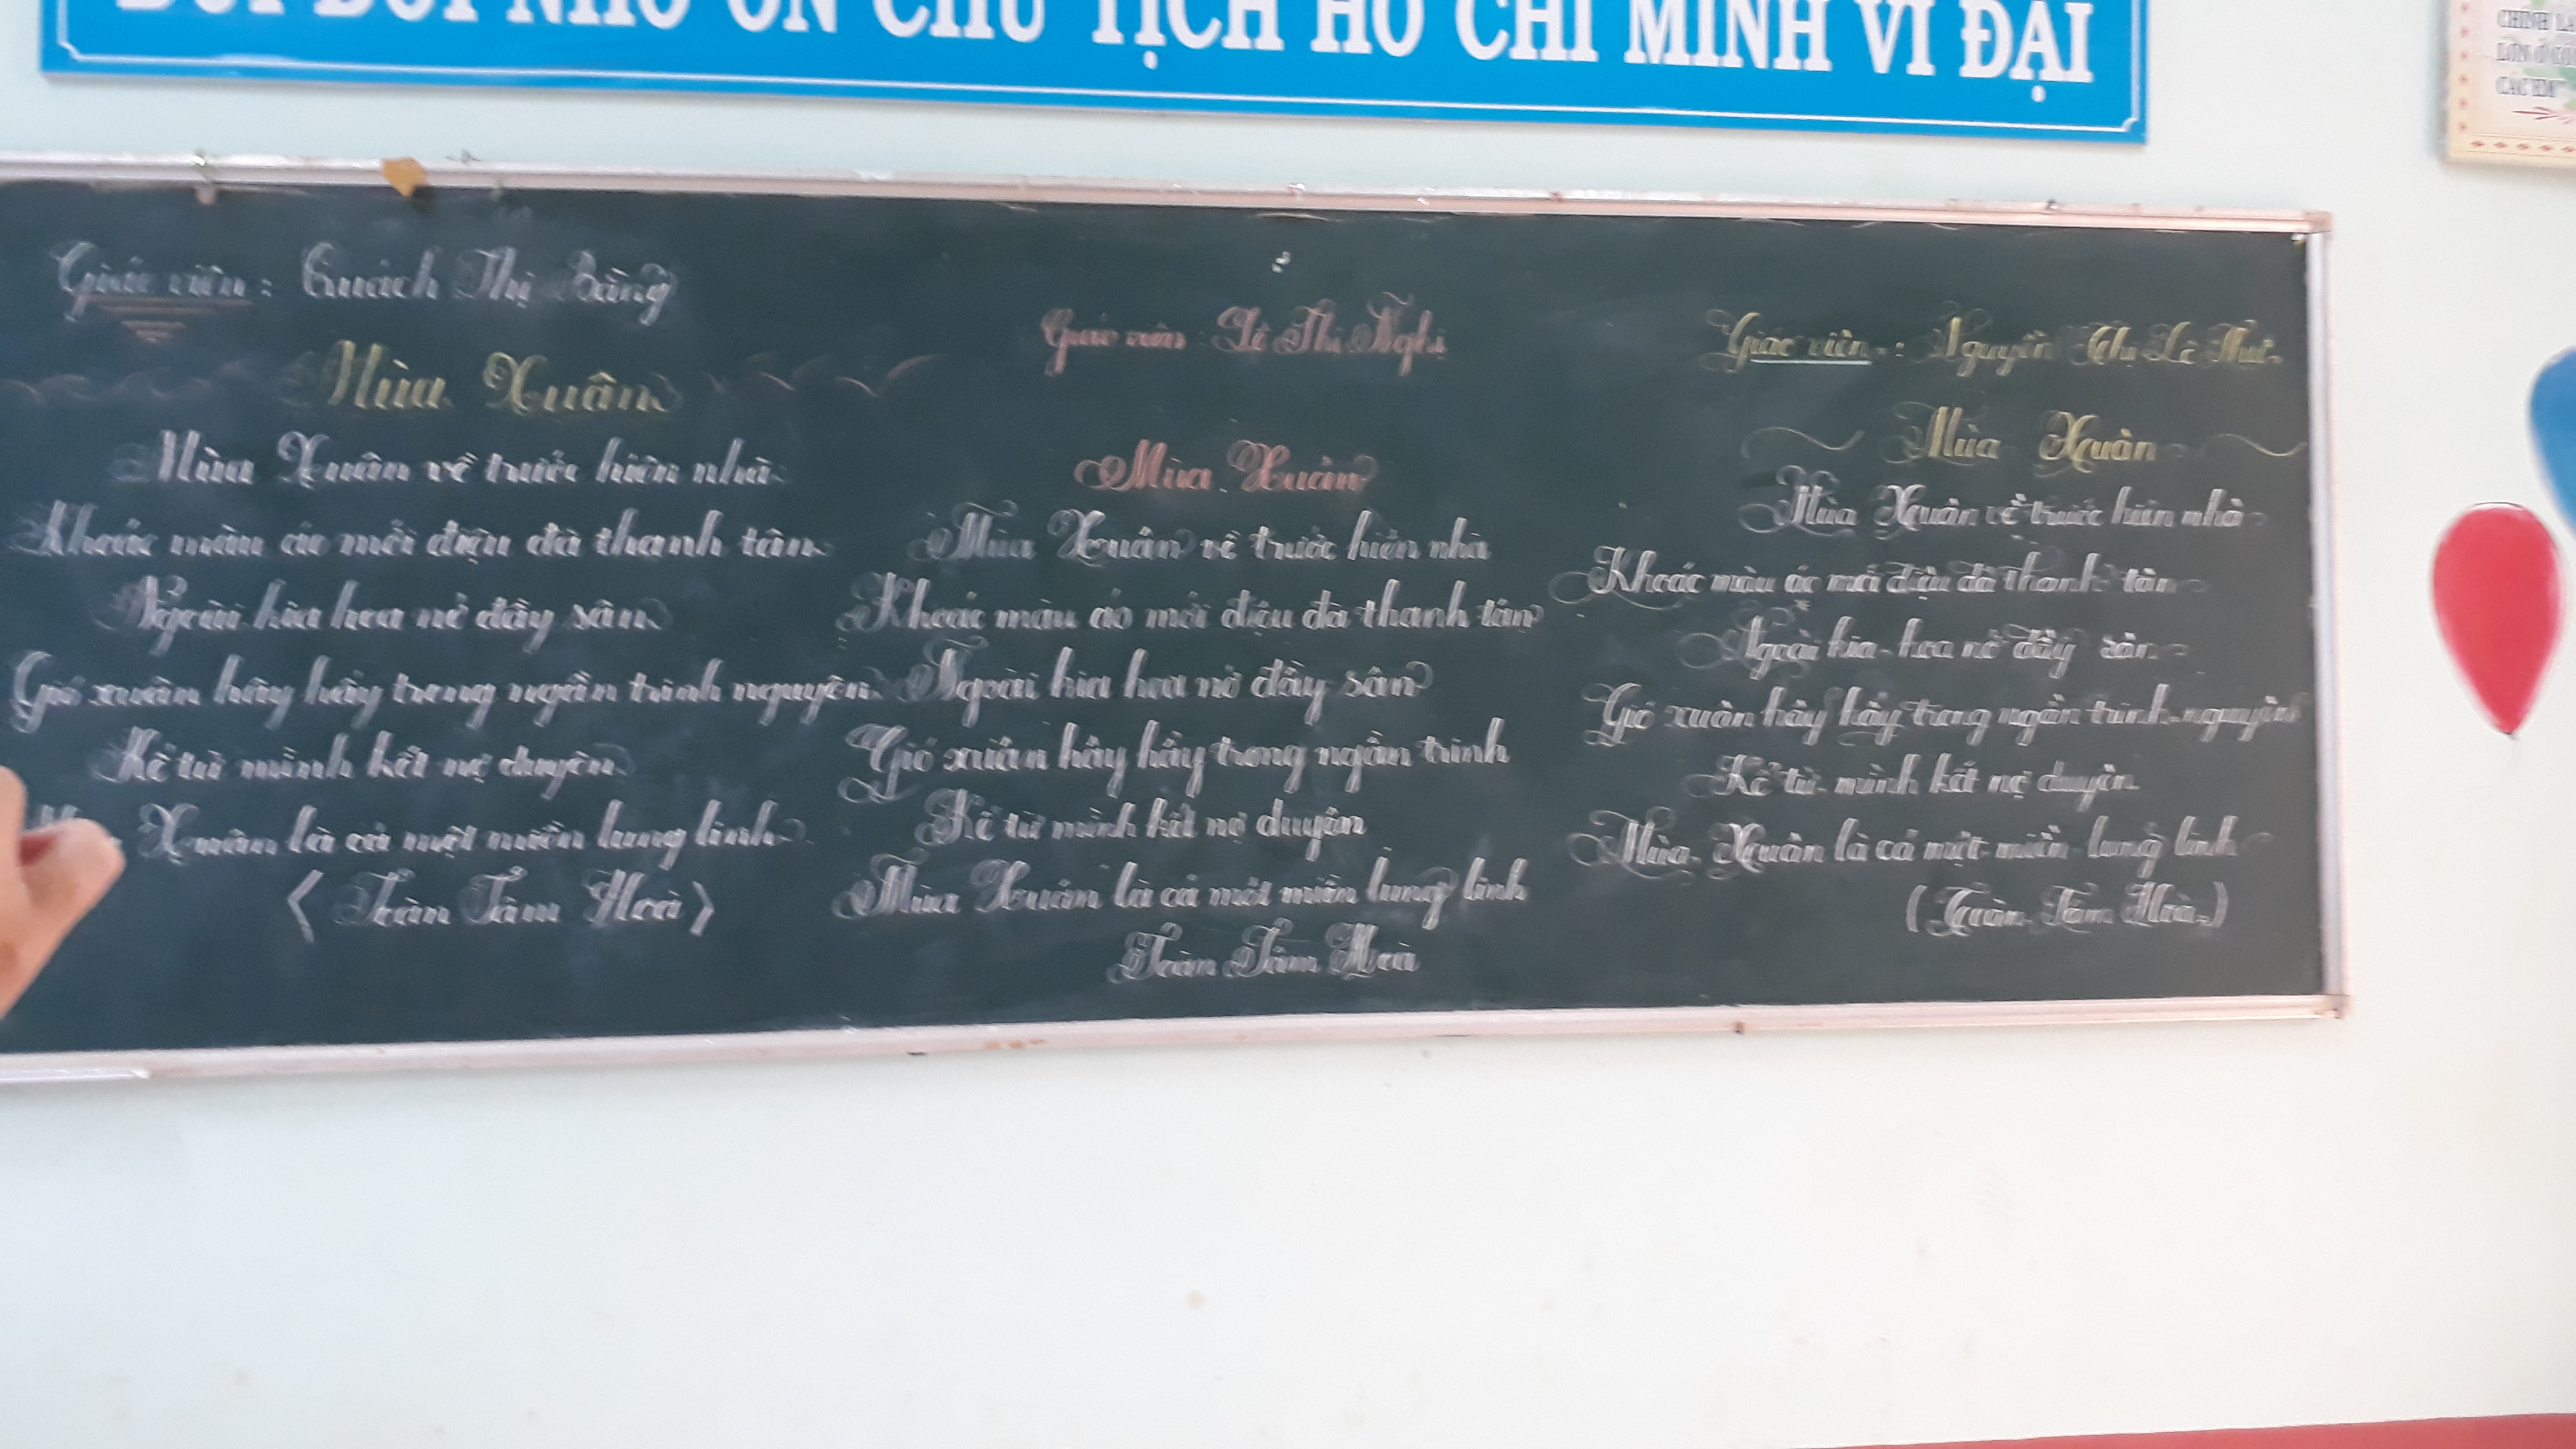 ĐỜI ĐỜI NHỚ ƠN CHỦ TỊCH HỒ CHÍ MINH VĨ ĐẠI
Giáo viên : Quách Thị Bằng
Mùa Xuân
Mùa Xuân về trước hiên nhà
Khoác màu áo mới điệu đà thanh tân
Ngoài kia hoa nở đầy sân
Gió xuân hây hẩy trong ngần trinh nguyên
Kể từ mình kết nợ duyên
Xuân là cả một miền lung linh
( Toàn Tâm Hoà )
Giáo viên : Lê Thị Nghị
Mùa Xuân
Mùa Xuân về trước hiên nhà
Khoác màu áo mới điệu đà thanh tân
Ngoài kia hoa nở đầy sân
Gió xuân hây hẩy trong ngần trinh
Kể từ mình kết nợ duyên
Mùa Xuân là cả một miền lung linh
Toàn Tâm Hoà
Giáo viên : Nguyễn Thị Lê
Mùa Xuân
Mùa Xuân về trước hiên nhà
Khoác màu áo mới điệu đà thanh tân
Ngoài kia hoa nở đầy sân
Gió xuân hây hẩy trong ngần trinh nguyên
Kể từ mình kết nợ duyên
Mùa Xuân là cả một miền lung linh
( Toàn Tâm Hoà )